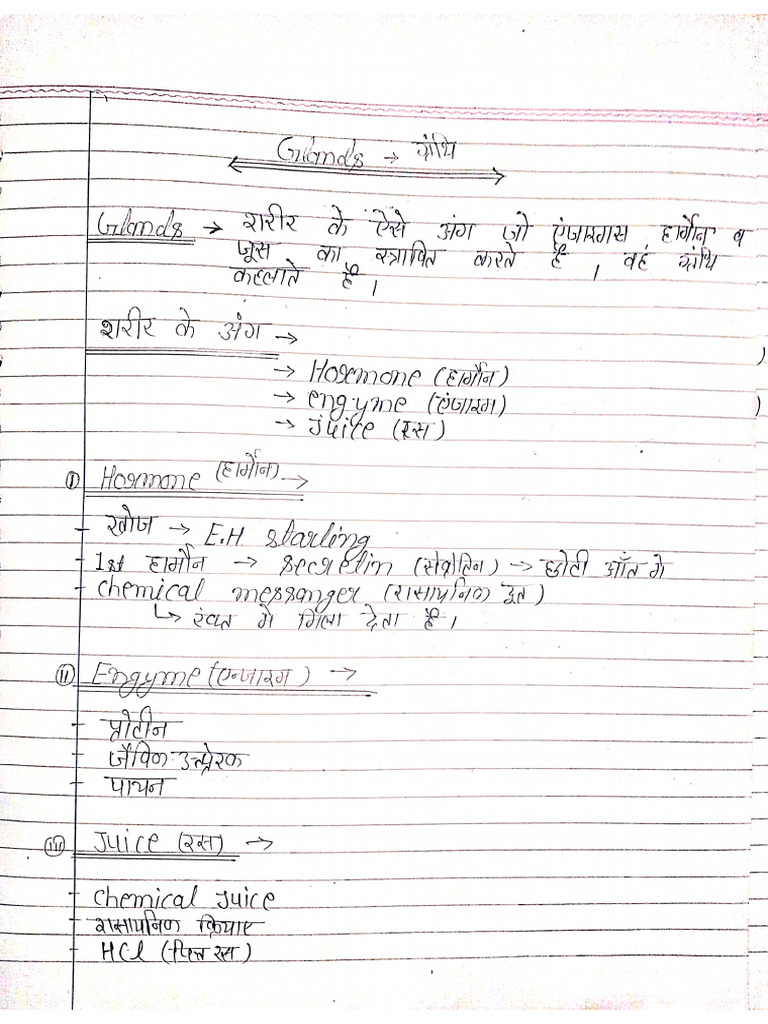 Glands → ग्रंथि
Glands → शरीर के ऐसे अंग जो एंजारगस हार्मोन व
जूस का स्त्रावित करते है । वह ग्रंथि
कहलाते है ।
शरीर के अंग →
→ Hormone (हार्मोन)
→ engyme (एंजारग)
→ Juice (रस)
(i) Hormone (हार्मोन) →
- खोज → E.H starling
- 1st हार्मोन → secretin (सेक्रेतिन) → छोटी आँत मे
- chemical messanger (रासायनिक दूत)
↳ रक्त मे मिला देता है ।
(ii) Engyme (एन्जारग) →
- प्रोटीन
- जैविक उत्प्रेरक
- पाचन
(iii) Juice (रस) →
- chemical Juice
- रासायनिक क्रियाए
- HCl (पित्त रस)